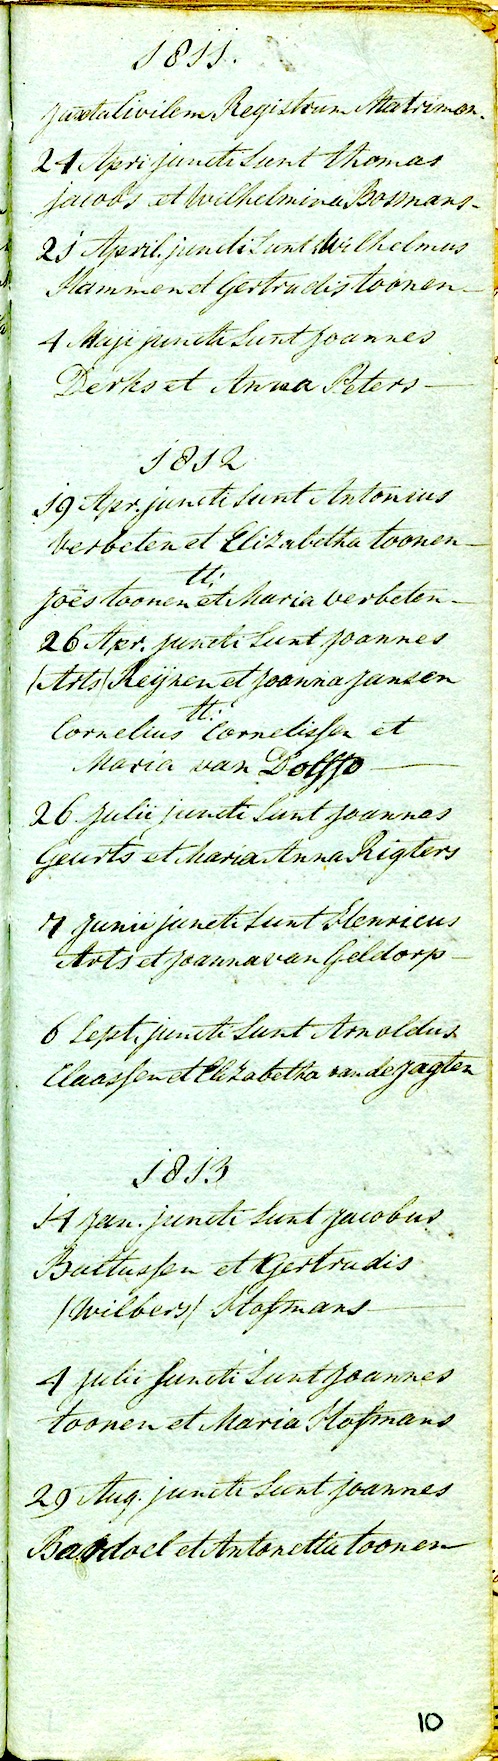 1811.
juxta Civilem Registrum Matrimon.
24 Apri juncti Sunt Thomas
jacobs et Wilhelmina Bosmans-
21 April. juncti Sunt Wilhelmus
Hammen et Gertrudis toonen-
4 Maji juncti Sunt joannes
Derks et Anna Peters-
1812
19 Apr. juncti Sunt Antonius
Verbeten et Elizabetha toonen-
tt:
joes toonen et Maria verbeten-
26 Apr. juncti Sunt joannes
/Arts/ Reijnen et joanna jansen
tt:
Cornelius Cornelissen et
Maria van
26 julii juncti Sunt joannes
Geurts et Maria Anna Rigters
7 junii juncti Sunt Henricus
Arts et joanna van Geldorp-
6 Sept. juncti Sunt Arnoldus
Claassen et Elizabetha van de jagten
1813
14 jan. juncti Sunt jacobus
Baltussen et Gertrudis
/Wilbers/ Hofmans-
4 julii juncti Sunt joannes
toonen et Maria Hofmans
29 Aug. juncti Sunt joannes
Bardoel et Antonetta toonen-
10